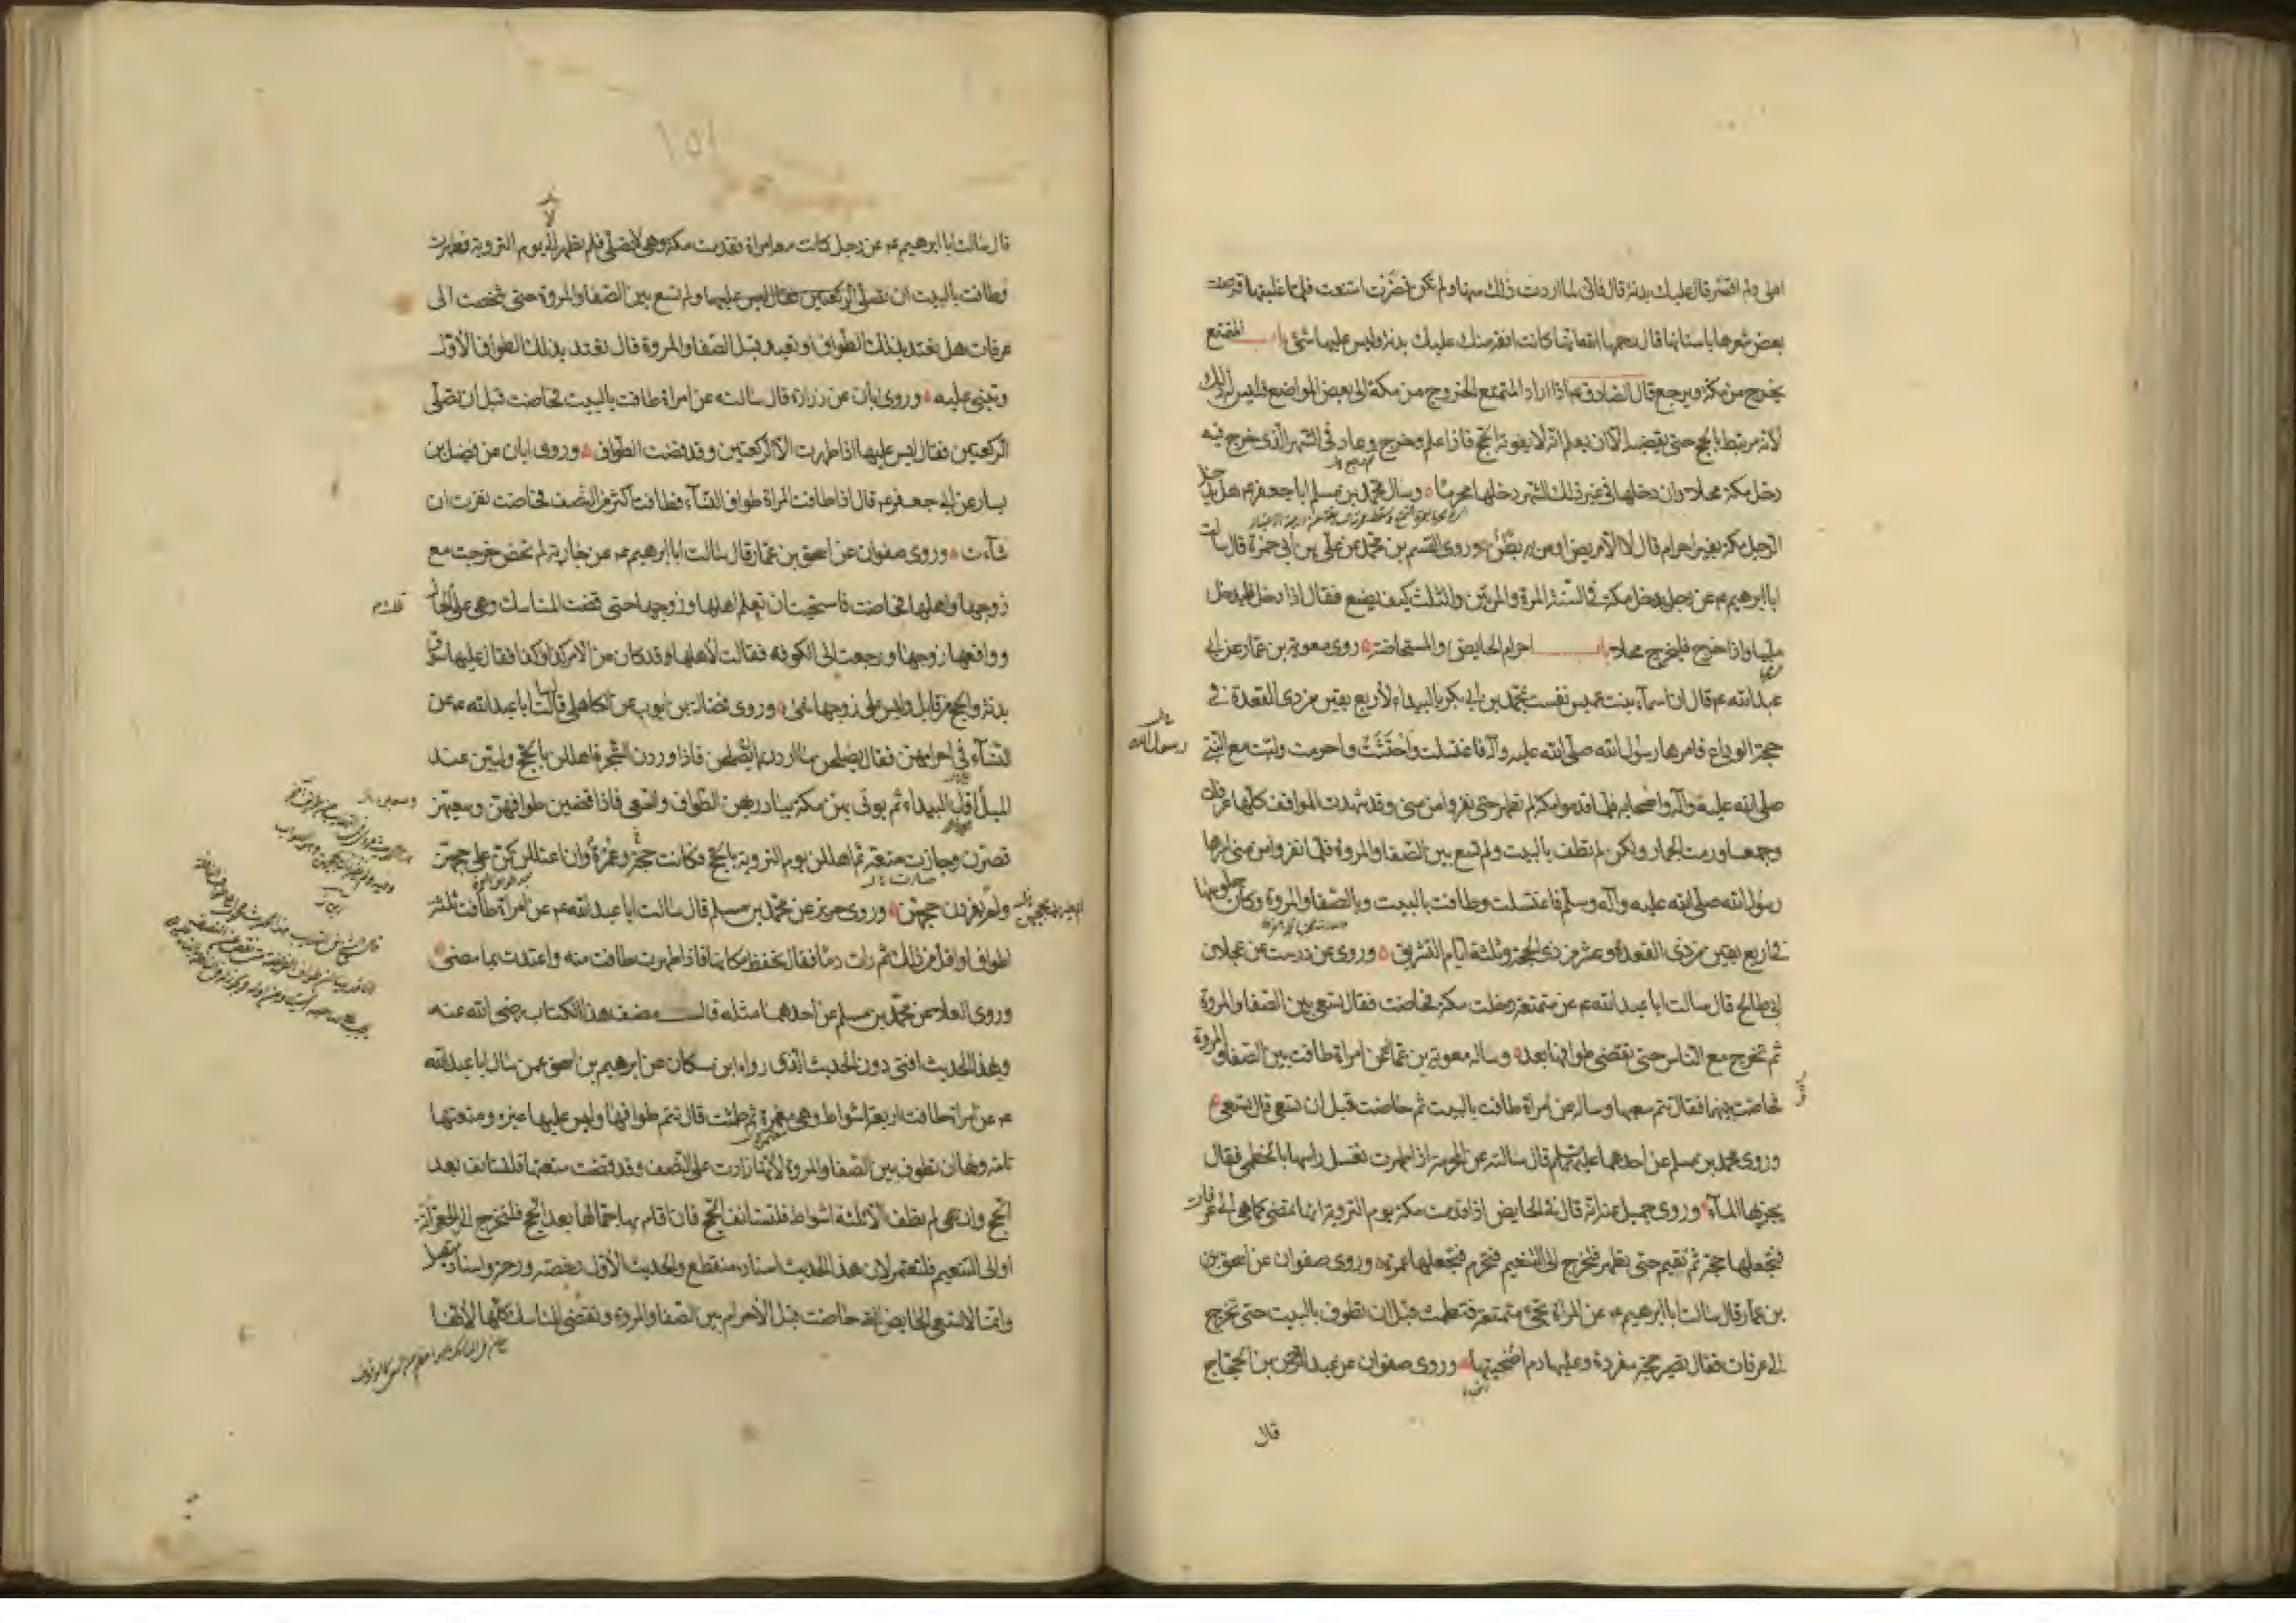 اهلى ولم اقصر قال عليك بدنة قال فانى لما اردت ذلك منها ولم تكن قصرت امتنعت فلما غلبتها قرضت
بعض شعرها باسنانها قال رحمها الله انها كانت افقه منك عليك بدنة وليس عليها شئ باب المتمتع
يخرج من مكة ويرجع قال الصادق ع اذا اراد المتمتع الخروج من مكة الى بعض المواضع فليس له ذلك
لانه مرتبط بالحج حتى يقضيه الا ان يعلم انه لا يفوته الحج فاذا علم وخرج وعاد فى الشهر الذى خرج فيه
دخل مكة محلا وان دخلها فى غير ذلك الشهر دخلها محرما وسال محمد بن مسلم ابا جعفر ع هل يدخل
الرجل مكة بغير احرام قال لا الا مريض او من به بطن وروى القسم بن محمد عن على بن ابى حمزة قال سالت
ابا ابرهيم ع عن رجل يدخل مكة فى السنة المرة والمرتين والثلث كيف يصنع فقال اذا دخل فليدخل
ملبيا واذا خرج فليخرج محلا باب احرام الحايض والمستحاضة روى معوية بن عمار عن ابى
عبد الله ع قال ان اسماء بنت عميس نفست بمحمد بن ابى بكر بالبيداء لاربع بقين من ذى القعدة فى
حجة الوداع فامرها رسول الله صلى الله عليه وآله فاغتسلت واحتشت واحرمت ولبت مع النبى
رسول الله
صلى الله عليه وآله واصحابه فلما قدموا مكة لم تطهر حتى نفروا من منى وقد شهدت المواقف كلها عرفات
وجمعا ورمت الجمار ولكن لم تطف بالبيت ولم تسع بين الصفا والمروة فلما نفروا من منى امرها
رسول الله صلى الله عليه وآله وسلم فاغتسلت وطافت بالبيت وبالصفا والمروة وكان جلوسها
فى اربع بقين من ذى القعدة وعشر من ذى الحجة وثلثة ايام التشريق وروى عن درست عن عجلان
ابى صالح قال سالت ابا عبد الله ع عن متمتعة دخلت مكة فحاضت فقال تسعى بين الصفا والمروة
ثم تخرج مع الناس حتى تقضى طوافها بعد وساله معوية بن عمار عن امراة طافت بين الصفا والمروة
فحاضت بينهما فقال تتم سعيها وساله عن امراة طافت بالبيت ثم حاضت قبل ان تسعى قال تسعى
وروى محمد بن مسلم عن احدهما عليهما السلم قال سالته عن المحرمة اذا طهرت تغسل راسها بالخطمى فقال
يجزيها الماء وروى جميل عنه انه قال فى الحايض اذا قدمت مكة يوم التروية انها تمضى كما هى الى عرفات
فتجعلها حجة ثم تقيم حتى تطهر فتخرج الى التنعيم فتحرم فتجعلها عمرة وروى صفوان عن اسحق بن
بن عمار قال سالت ابا ابرهيم ع عن المراة تجىء متمتعة فتطمث قبل ان تطوف بالبيت حتى تخرج
الى عرفات فقال تصير حجة مفردة وعليها دم اضحيتها وروى صفوان عن عبد الرحمن بن الحجاج
قال
قال سالت ابا ابرهيم ع عن رجل كانت معه امراة فقدمت مكة وهى لا تصلى فلم تطهر الا يوم التروية فطهرت
وطافت بالبيت
عرفات هل تعتد بذلك الطواف او تعيد قبل الصفا والمروة قال تعتد بذلك الطواف الاول
وتبنى عليه وروى ابان عن زرارة قال سالته عن امراة طافت بالبيت فحاضت قبل ان تصلى
الركعتين فقال ليس عليها اذا طهرت الا الركعتين وقد قضت الطواف وروى ابان عن فضيل بن
يسار عن ابى جعفر ع قال اذا طافت المراة طواف النساء فطافت اكثر من النصف فحاضت نفرت ان
شاءت وروى صفوان عن اسحق بن عمار قال سالت ابا ابرهيم ع عن جارية لم تحض خرجت مع
زوجها واهلها فحاضت فاستحيت ان تعلم اهلها وزوجها حتى قضت المناسك وهى على تلك الحال
وواقعها زوجها ورجعت الى الكوفة فقالت لاهلها قد كان من الامر كذا وكذا فقال عليها سوق
بدنة والحج من قابل وليس على زوجها شئ وروى فضالة بن ايوب عن الكاهلى قال سالت ابا عبد الله ع عن
النساء فى احرامهن فقال يصلحن ما اردن ان يصلحن فاذا وردن الشجرة اهللن بالحج ولبين عند
الميل اول البيداء ثم يوتى بهن مكة يبادر بهن الطواف والسعى فاذا قضين طوافهن وسعيهن
قصرن وجازت متعة ثم اهللن يوم التروية بالحج وكانت حجة وعمرة وان اعتللن كن على حجهن
ولم يفردن حجهن وروى حريز عن محمد بن مسلم قال سالت ابا عبد الله ع عن امراة طافت ثلثة
اطواف او اقل من ذلك ثم رات دما فقال تحفظ مكانها فاذا طهرت طافت منه واعتدت بما مضى
وروى العلا عن محمد بن مسلم عن احدهما مثله قال مصنف هذا الكتاب رضى الله عنه
وبهذا الحديث افتى دون الحديث الذى رواه ابن مسكان عن ابرهيم بن اسحق عمن سال ابا عبد الله
ع عن امراة طافت اربعة اشواط وهى معتمرة ثم طمثت قال تتم طوافها وليس عليها غيره ومتعتها
تامة ولها ان تطوف بين الصفا والمروة لانها زادت على النصف وقد قضت متعتها فلتستانف بعد
الحج وان هى لم تطف الا ثلثة اشواط فلتستانف الحج فان اقام بها جمالها بعد الحج فلتخرج الى الجعرانة
او الى التنعيم فلتعتمر لان هذا الحديث اسناده منقطع والحديث الاول رخصة ورحمة واسناده متصل
وانما لا تسعى الحايض التى حاضت قبل الاحرام بين الصفا والمروة وتقضى المناسك كلها لانها